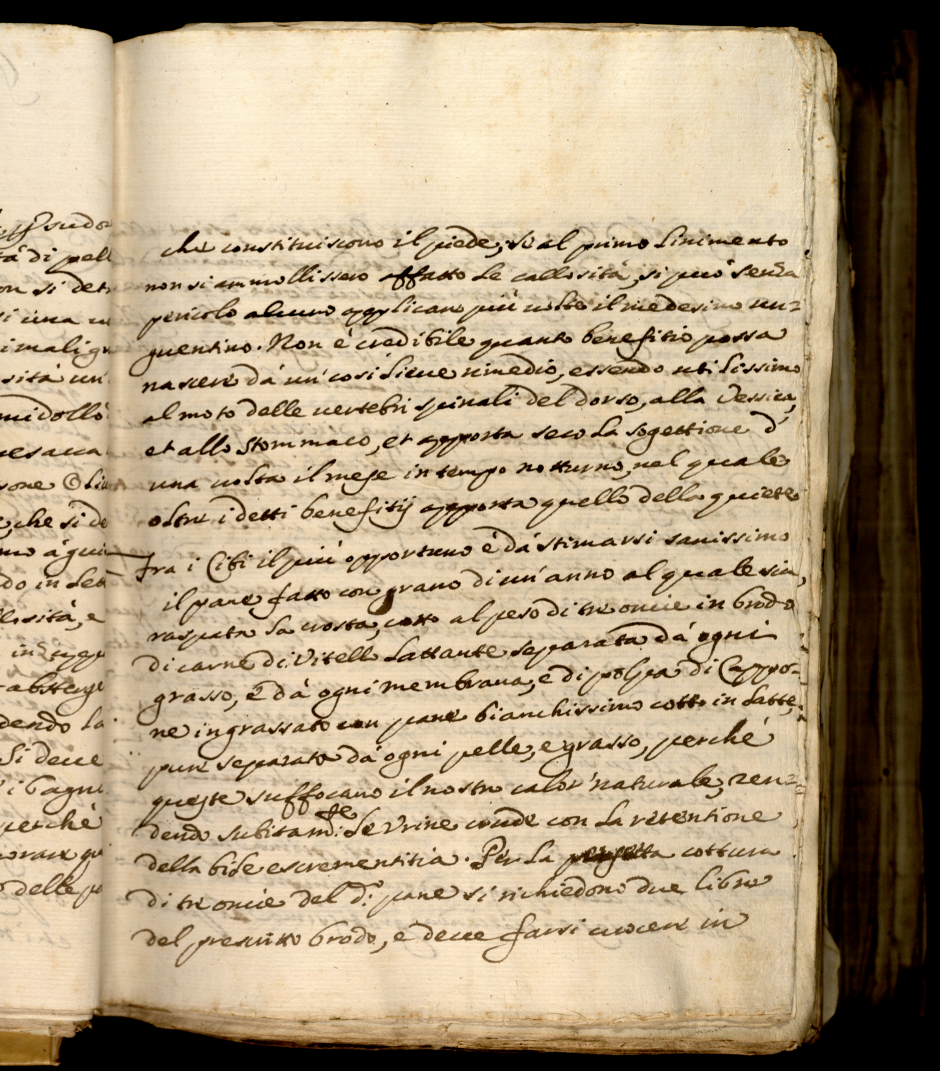 che constituiscono il piede, se al primo Linimento
non si ammollissero affatto Le callosità, si può senza
pericolo alcuno applicare più uolte il medesimo un=
guentino. Non è credibile quanto benefitio possa
nascere dà un' cosi Lieue rimedio, essendo utilissimo
al moto delle uertebri spinali del dorso, alla Vessica,
et allo Stommaco, et apporta seco La sogettione d'
una uolta il mese in tempo notturno, nel quale
oltre i detti benefitij apporta quello della quiete
fra i Cibi il più opportuno è dà stimarsi sanissimo
il pane fatto con grano di un' anno al quale sia,
raspata La crosta, cotto al peso di tre oncie in brodo
di carne di Vitella Lattante separata dà ogni
grasso, è dà ogni membrana, è di polpa di Cappo-
ne ingrassato con pane bianchissimo cotto in Latte,
pure separata dà ogni pelle, e grasso, perchè
queste suffocano il nostro calor' naturale, ren=
dendo subitam:te Le Vrine crude con La retentione
della bile escrementitia. Per La perfetta cottura
di tre oncie del d:o pane si richiedono due libre
del prescritto brodo, è deue farsi cuocere in